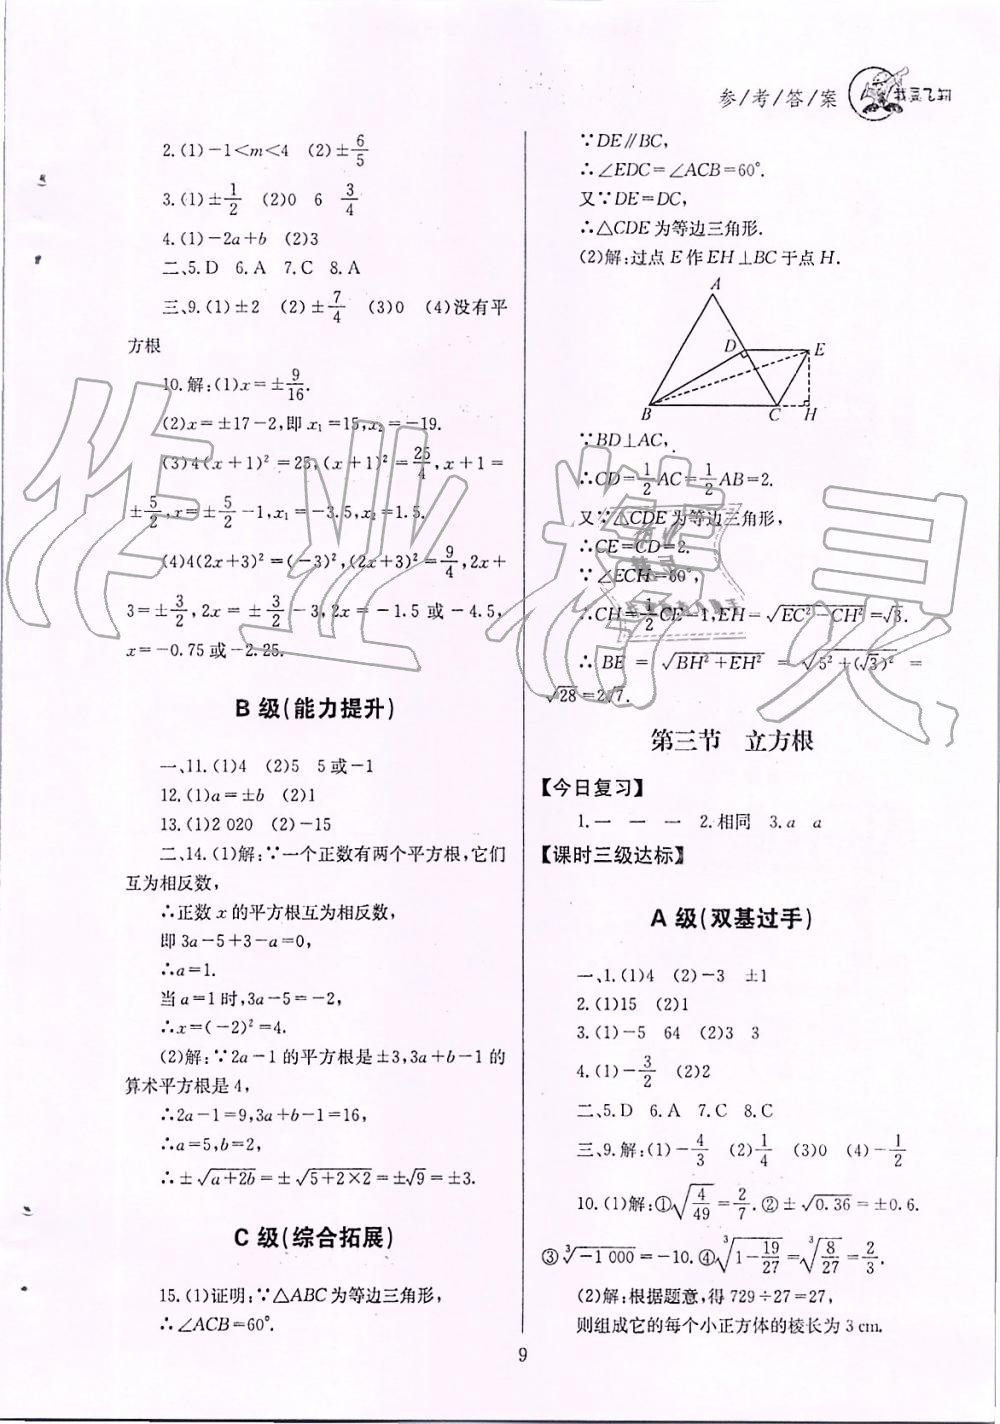 参/考/答/案
2.(1)-1<m<4 (2)±6/5
3.(1)±1/2 (2)0 6 3/4
4.(1)-2a+b (2)3
二、5.D 6.A 7.C 8.A
三、9.(1)±2 (2)±7/4 (3)0 (4)没有平
方根
10.解:(1)x=±9/16.
(2)x=±17-2,即x₁=15,x₂=-19.
(3)4(x+1)²=25,(x+1)²=25/4,x+1=
±5/2,x=±5/2-1,x₁=-3.5,x₂=1.5.
(4)4(2x+3)²=(-3)²,(2x+3)²=9/4,2x+
3=±3/2,2x=±3/2-3,2x=-1.5或-4.5,
x=-0.75或-2.25.
B级(能力提升)
一、11.(1)4 (2)5 5或-1
12.(1)a=±b (2)1
13.(1)2 020 (2)-15
二、14.(1)解:∵一个正数有两个平方根,它们
互为相反数,
∴正数x的平方根互为相反数,
即3a-5+3-a=0,
∴a=1.
当a=1时,3a-5=-2,
∴x=(-2)²=4.
(2)解:∵2a-1的平方根是±3,3a+b-1的
算术平方根是4,
∴2a-1=9,3a+b-1=16,
∴a=5,b=2,
∴±√(a+2b)=±√(5+2×2)=±√9=±3.
C级(综合拓展)
15.(1)证明:∵△ABC为等边三角形,
∴∠ACB=60°.
∵DE∥BC,
∴∠EDC=∠ACB=60°.
又∵DE=DC,
∴△CDE为等边三角形.
(2)解:过点E作EH⊥BC于点H.
A
D
E
B
C
H
∵BD⊥AC,
∴CD=1/2AC=1/2AB=2.
又∵△CDE为等边三角形,
∴CE=CD=2.
∵∠ECH=60°,
∴CH=1/2CE=1,EH=√(EC²-CH²)=√3.
∴BE=√(BH²+EH²)=√(5²+(√3)²)=
√28=2√7.
第三节 立方根
【今日复习】
1.一 一 一 2.相同 3.a a
【课时三级达标】
A级(双基过手)
一、1.(1)4 (2)-3 ±1
2.(1)15 (2)1
3.(1)-5 64 (2)3 3
4.(1)-3/2 (2)2
二、5.D 6.A 7.C 8.C
三、9.解:(1)-4/3 (2)1/4 (3)0 (4)-1/2
10.(1)解:①√(4/49)=2/7.②±√0.36=±0.6.
③∛(-1 000)=-10.④∛(1-19/27)=∛(8/27)=2/3.
(2)解:根据题意,得729÷27=27,
则组成它的每个小正方体的棱长为3 cm.
9
作业精灵